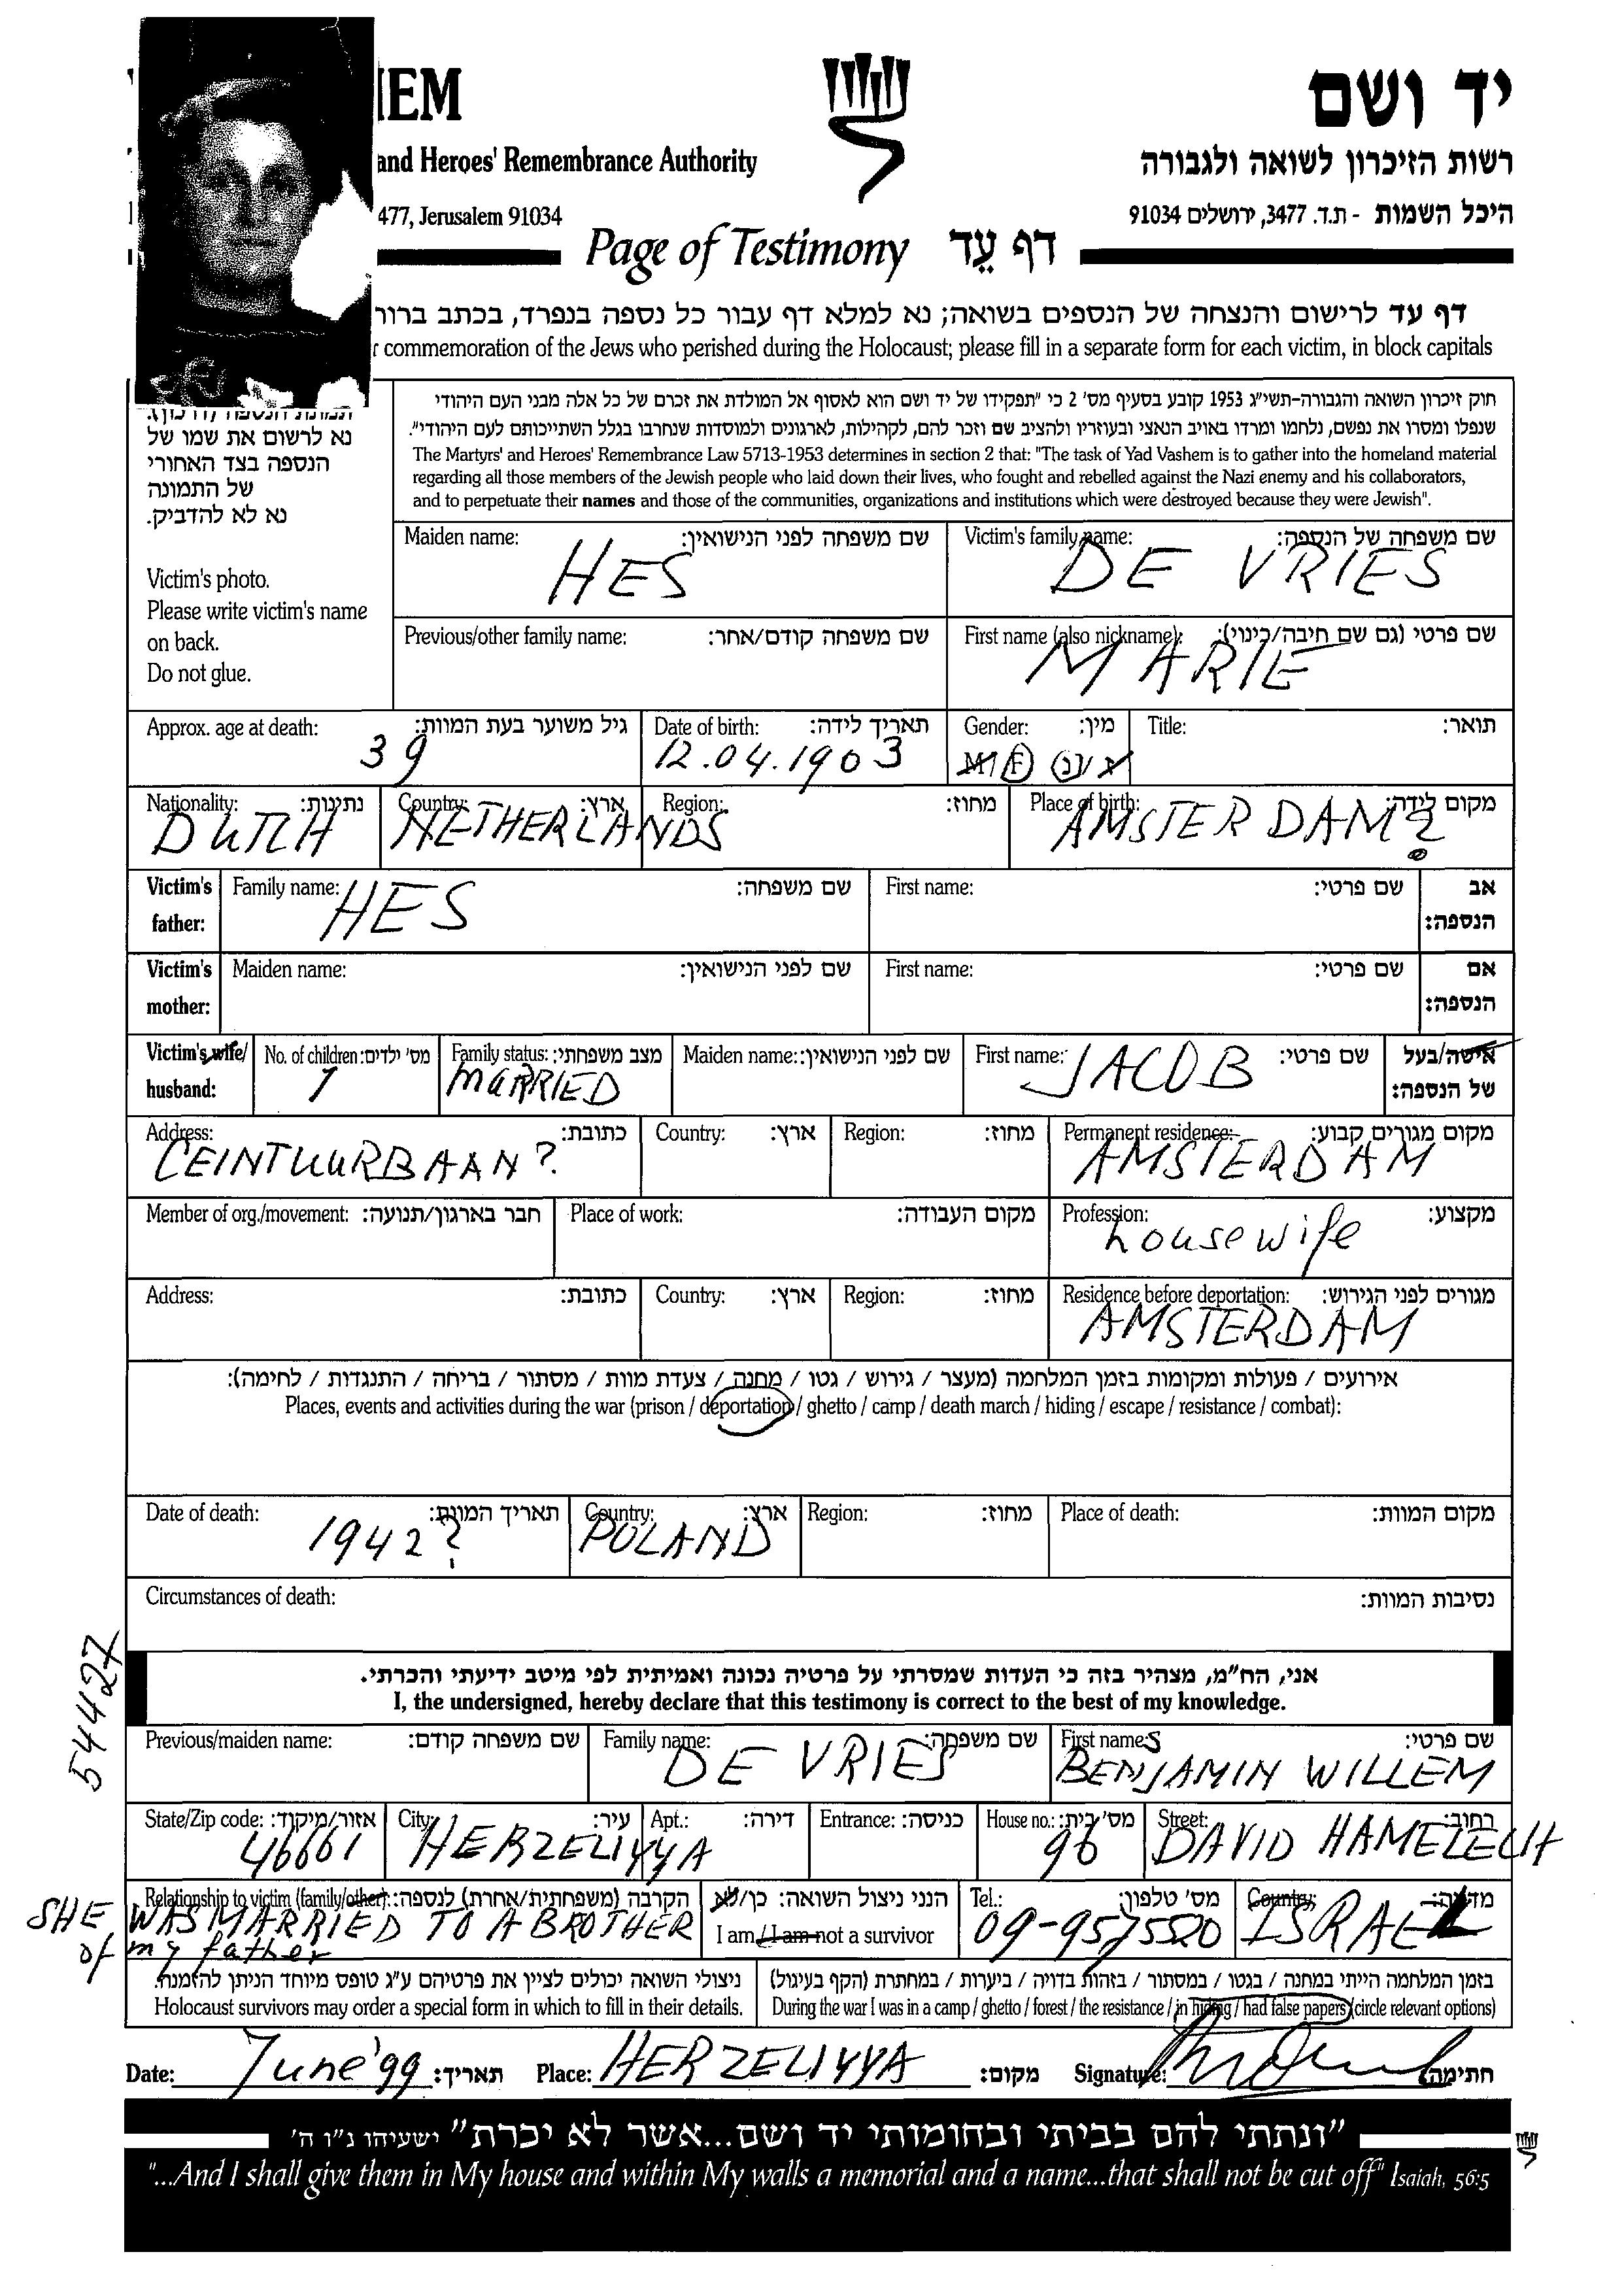 IEM
יד ושם
and Heroes' Remembrance Authority
רשות הזיכרון לשואה ולגבורה
477, Jerusalem 91034
היכל השמות - ת.ד. 3477, ירושלים 91034
Page of Testimony דף עֵד
דף עד לרישום והנצחה של הנספים בשואה; נא למלא דף עבור כל נספה בנפרד, בכתב ברור
r commemoration of the Jews who perished during the Holocaust; please fill in a separate form for each victim, in block capitals
נא לרשום את שמו של
הנספה בצד האחורי
של התמונה
נא לא להדביק.
Victim's photo.
Please write victim's name
on back.
Do not glue.
חוק זיכרון השואה והגבורה-תשי״ג 1953 קובע בסעיף מס' 2 כי "תפקידו של יד ושם הוא לאסוף אל המולדת את זכרם של כל אלה מבני העם היהודי
שנפלו ומסרו את נפשם, נלחמו ומרדו באויב הנאצי ובעוזריו ולהציב שם וזכר להם, לקהילות, לארגונים ולמוסדות שנחרבו בגלל השתייכותם לעם היהודי".
The Martyrs' and Heroes' Remembrance Law 5713-1953 determines in section 2 that: "The task of Yad Vashem is to gather into the homeland material
regarding all those members of the Jewish people who laid down their lives, who fought and rebelled against the Nazi enemy and his collaborators,
and to perpetuate their names and those of the communities, organizations and institutions which were destroyed because they were Jewish".
Maiden name: שם משפחה לפני הנישואין: Victim's family name: שם משפחה של הנספה:
HES DE VRIES
Previous/other family name: שם משפחה קודם/אחר: First name (also nickname): שם פרטי (גם שם חיבה/כינוי):
MARIE
Approx. age at death: גיל משוער בעת המוות: Date of birth: תאריך לידה: Gender: מין: Title: תואר:
39 12.04.1903 M/F ז/נ
Nationality: נתינות: Country: ארץ: Region: מחוז: Place of birth: מקום לידה:
DUTCH NETHERLANDS AMSTERDAM?
Victim's Family name: שם משפחה: First name: שם פרטי: אב
father: HES הנספה:
Victim's Maiden name: שם לפני הנישואין: First name: שם פרטי: אם
mother: הנספה:
Victim's wife/ No. of children: מס' ילדים: Family status: מצב משפחתי: Maiden name: שם לפני הנישואין: First name: שם פרטי: אישה/בעל
husband: 1 MARRIED JACOB של הנספה:
Address: כתובת: Country: ארץ: Region: מחוז: Permanent residence: מקום מגורים קבוע:
CEINTUURBAAN? AMSTERDAM
Member of org./movement: חבר בארגון/תנועה: Place of work: מקום העבודה: Profession: מקצוע:
housewife
Address: כתובת: Country: ארץ: Region: מחוז: Residence before deportation: מגורים לפני הגירוש:
AMSTERDAM
אירועים / פעולות ומקומות בזמן המלחמה (מעצר / גירוש / גטו / מחנה / צעדת מוות / מסתור / בריחה / התנגדות / לחימה):
Places, events and activities during the war (prison / deportation / ghetto / camp / death march / hiding / escape / resistance / combat):
Date of death: תאריך המוות: Country: ארץ: Region: מחוז: Place of death: מקום המוות:
1942? POLAND
Circumstances of death: נסיבות המוות:
544427
אני, הח״מ, מצהיר בזה כי העדות שמסרתי על פרטיה נכונה ואמיתית לפי מיטב ידיעתי והכרתי.
I, the undersigned, hereby declare that this testimony is correct to the best of my knowledge.
Previous/maiden name: שם משפחה קודם: Family name: שם משפחה: First nameS שם פרטי:
DE VRIES BENJAMIN WILLEM
State/Zip code: אזור/מיקוד: City: עיר: Apt.: דירה: Entrance: כניסה: House no.: מס' בית: Street: רחוב:
46661 HERZELIYYA 96 DAVID HAMELECH
Relationship to victim (family/other): הקרבה (משפחתית/אחרת) לנספה: הנני ניצול השואה: כן/לא Tel.: מס' טלפון: Country: מדינה:
SHE WAS MARRIED TO A BROTHER I am / I am not a survivor 09-9575520 ISRAEL
of my father
בזמן המלחמה הייתי במחנה / בגטו / במסתור / בזהות בדויה / ביערות / במחתרת (הקף בעיגול) ניצולי השואה יכולים לציין את פרטיהם ע״ג טופס מיוחד הניתן להזמנה.
Holocaust survivors may order a special form in which to fill in their details. During the war I was in a camp / ghetto / forest / the resistance / in hiding / had false papers (circle relevant options)
Date: June '99 תאריך: Place: HERZELIYYA מקום: Signature: חתימה:
"ונתתי להם בביתי ובחומותי יד ושם...אשר לא יכרת" ישעיהו נ״ו ה'
"...And I shall give them in My house and within My walls a memorial and a name...that shall not be cut off" Isaiah, 56:5